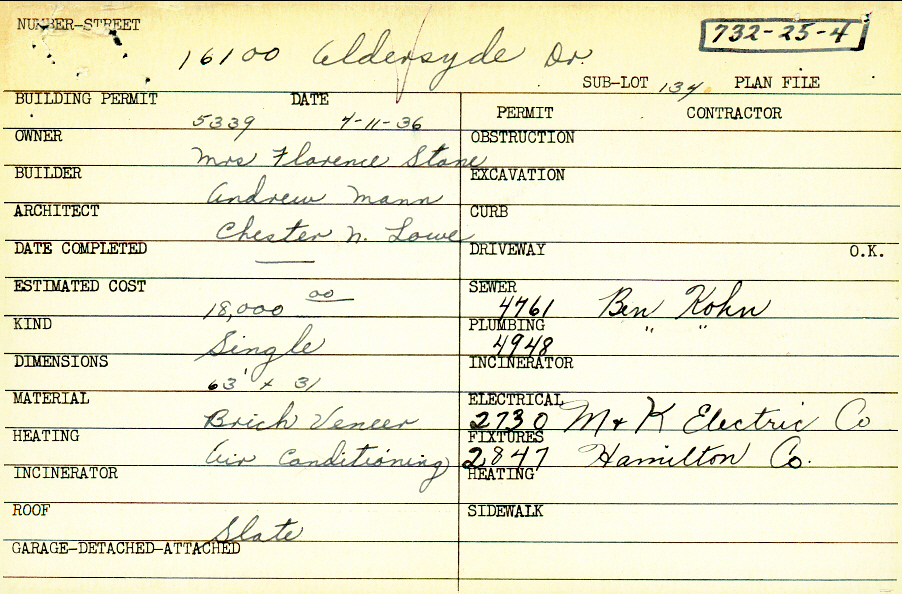 NUMBER-STREET
732-25-4
16100 Aldersyde Dr.
SUB-LOT 134 PLAN FILE
BUILDING PERMIT DATE
5339 7-11-36
PERMIT CONTRACTOR
OWNER
Mrs Florence Stone
OBSTRUCTION
BUILDER
Andrew Mann
EXCAVATION
ARCHITECT
Chester N. Lowe
CURB
DATE COMPLETED
DRIVEWAY O.K.
ESTIMATED COST
18,000 00
SEWER
4761 Ben Kohn
KIND
Single
PLUMBING
4948 " "
DIMENSIONS
63' x 31
INCINERATOR
MATERIAL
Brick Veneer
ELECTRICAL
2730 M & K Electric Co
HEATING
Air Conditioning
FIXTURES
2847 Hamilton Co.
INCINERATOR
HEATING
ROOF
Slate
SIDEWALK
GARAGE-DETACHED-ATTACHED